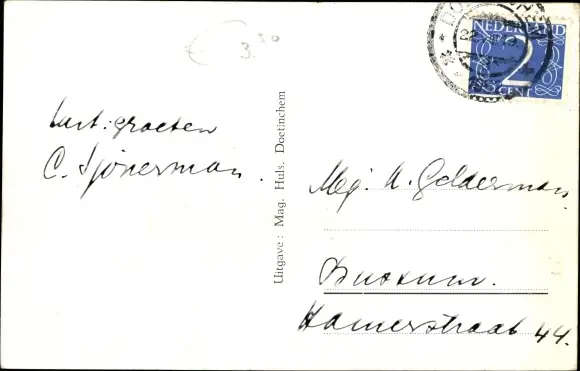 € 3.50
NEDERLAND
2
CENT
hart. groeten
C. Sjönerman.
Uitgave: Mag. Huls. Doetinchem
Mej. A. Gelderman.
Bussum.
Hamerstraat 44.